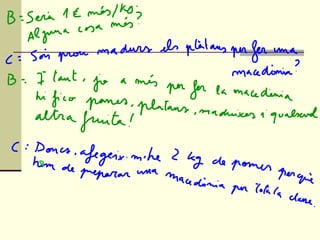 B = Serà 1 € més/kg.
Alguna cosa més?
C = Són prou madurs els plàtans per fer una
macedònia?
B = I tant, jo a més per fer la macedònia
hi fico pomes, plàtans, maduixes i qualsevol
altra fruita!
C = Doncs, afegeix-m'he 2 kg de pomes perquè
hem de preparar una macedònia per tota la classe.